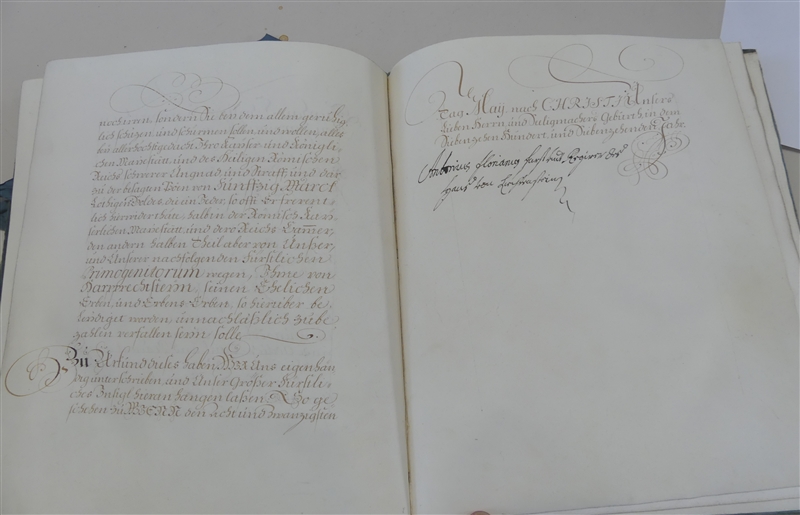 nacheren, sondern Sie beÿ dem allem geruhig,
lich schüzen, und schermen sollen, und wollen, alles
beÿ allerhöchstgedacht Ihro Kaÿser- und Königli-
chen Maÿestätt, und des Heiligen Römischen
Reichs schwerer Ungnad und Straff, und dar
zu der besagten Pöen von Fünffzig Marck
Lothiges Goldes, die ein Jeder, so offt Er freuent-
lich herwider thete, halben der Römisch Kaÿ-
serlichen Maÿestätt, und dero Reichs Cam̄er,
den andern halben Theil aber von Unser,
und Unserer nachfolgenden Fürstlichen
Primogenitorum wegen, Ihme von
Harpprechtstein, seinen Ehelichen
Erben, und Erbens Erben, so hierüber be-
leidigt worden, unnachläßlich zu be-
zahlen verfallen seÿn solle.
Zu Urkund dieses haben Wir Uns eigenhän
dig unterschrieben, und Unser Größer Fürstli-
ches Insigl hieran hangen laßen. So ge
schehen zu WIENN den acht und zwanzigsten
Tag Maÿ, nach CHRISTI Unsers
Lieben Herrn und Seeligmachers Gebürth, in dem
Sibenzehen Hundert, und Sibenzehenden Jahr.
Antonius Florianus fürst und Regierer des
Haus von Liechtenstein